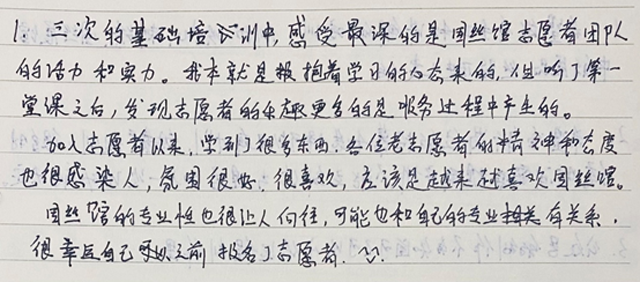 1. 三次的基础培训中,感受最深的是国丝馆志愿者团队
的活力和实力。我本就是报抱着学习的心态来的,但听了第一
堂课之后,发现志愿者的乐趣更多的是服务过程中产生的。
加入志愿者以来,学到了很多东西,各位老志愿者的精神和态度
也很感染人,氛围很好,很喜欢,应该是越来越喜欢国丝馆。
国丝馆的专业性也很让人向往,可能也和自己的专业相关有关系,
很幸运自己可以之前报名了志愿者.